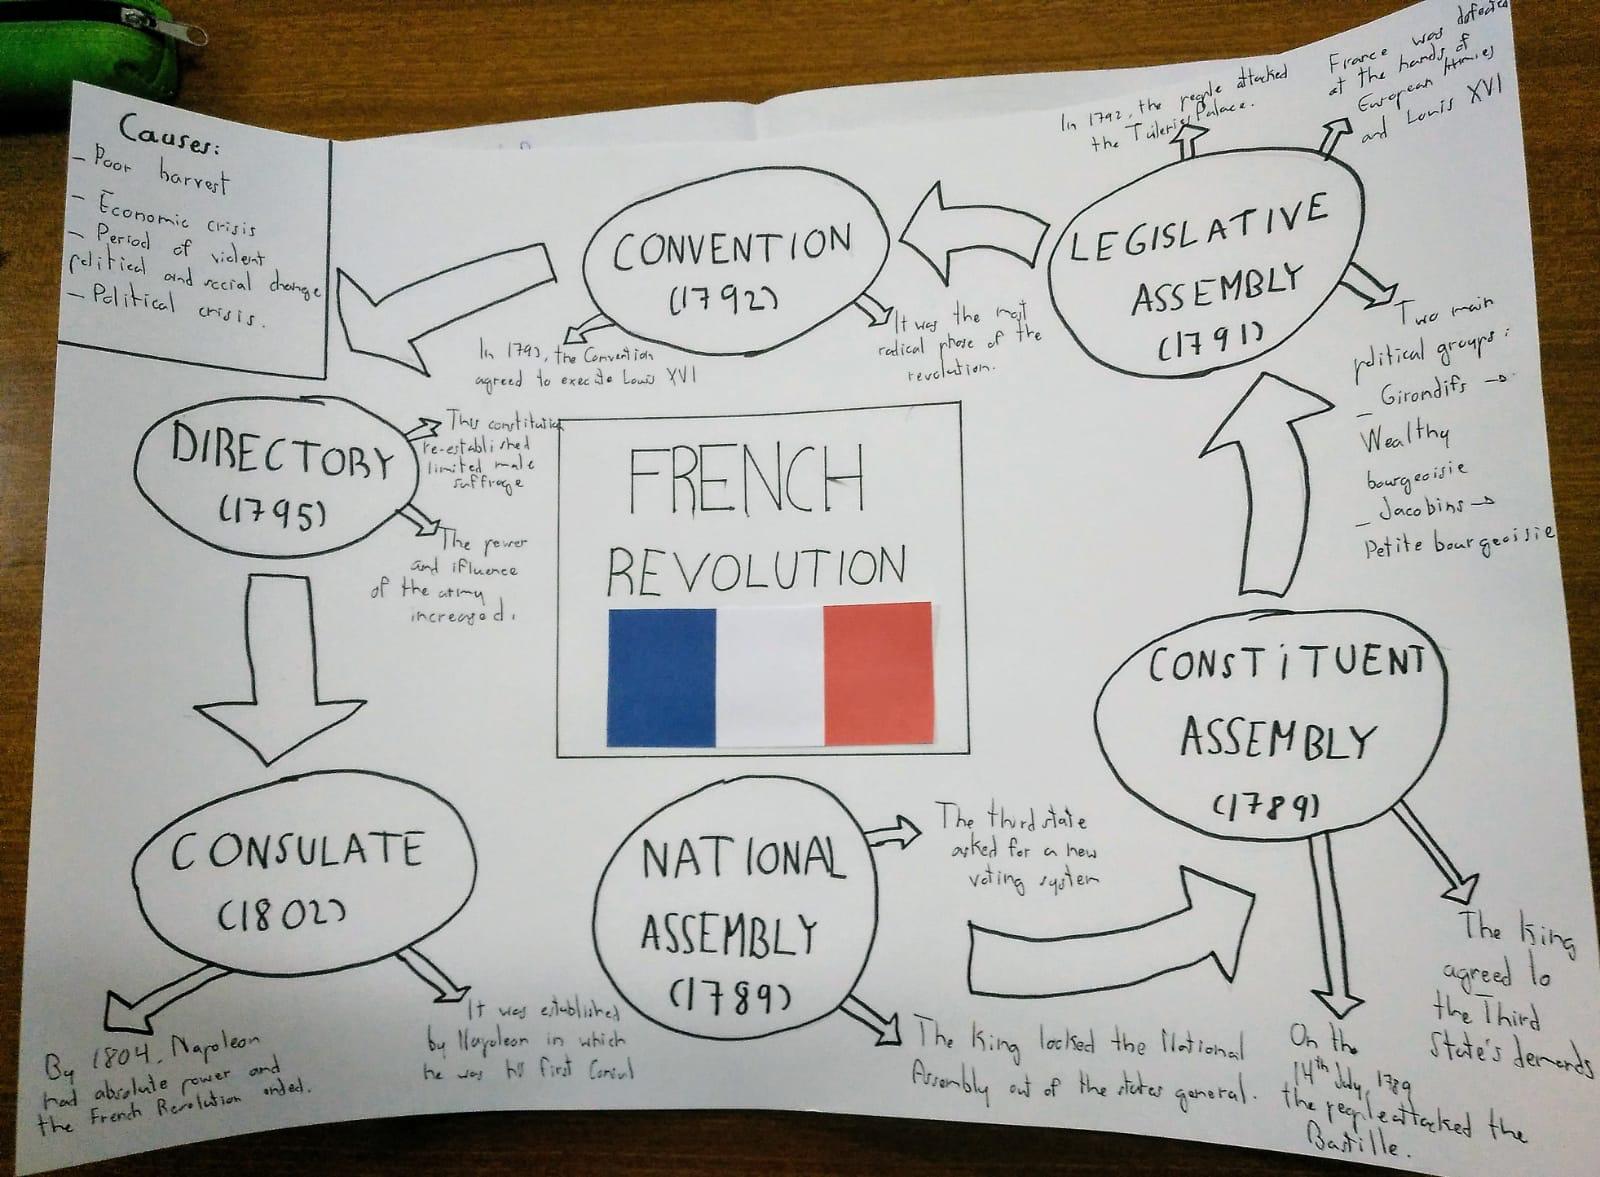 Causes:
- Poor harvest
- Economic crisis
- Period of violent
political and social change
- Political crisis.
FRENCH
REVOLUTION
NATIONAL
ASSEMBLY
(1789)
The third state
asked for a new
voting system
The King locked the National
Assembly out of the states general.
CONSTITUENT
ASSEMBLY
(1789)
The King
agreed to
the Third
State's demands
On the
14th July, 1789
the people attacked the
Bastille.
LEGISLATIVE
ASSEMBLY
(1791)
In 1792, the people attacked
the Tuleris Palace.
France was defeated
at the hands of
European Armies
and Louis XVI
Two main
political groups:
- Girondifs →
Wealthy
bourgeoisie
- Jacobins →
Petite bourgeoisie
CONVENTION
(1792)
In 1793, the Convention
agreed to execute Louis XVI
It was the most
radical phase of the
revolution.
DIRECTORY
(1795)
This constitution
re-established
limited male
suffrage
The power
and ifluence
of the army
increased.
CONSULATE
(1802)
By 1804, Napoleon
had absolute power and
the French Revolution ended.
It was established
by Napoleon in which
he was his first Consul